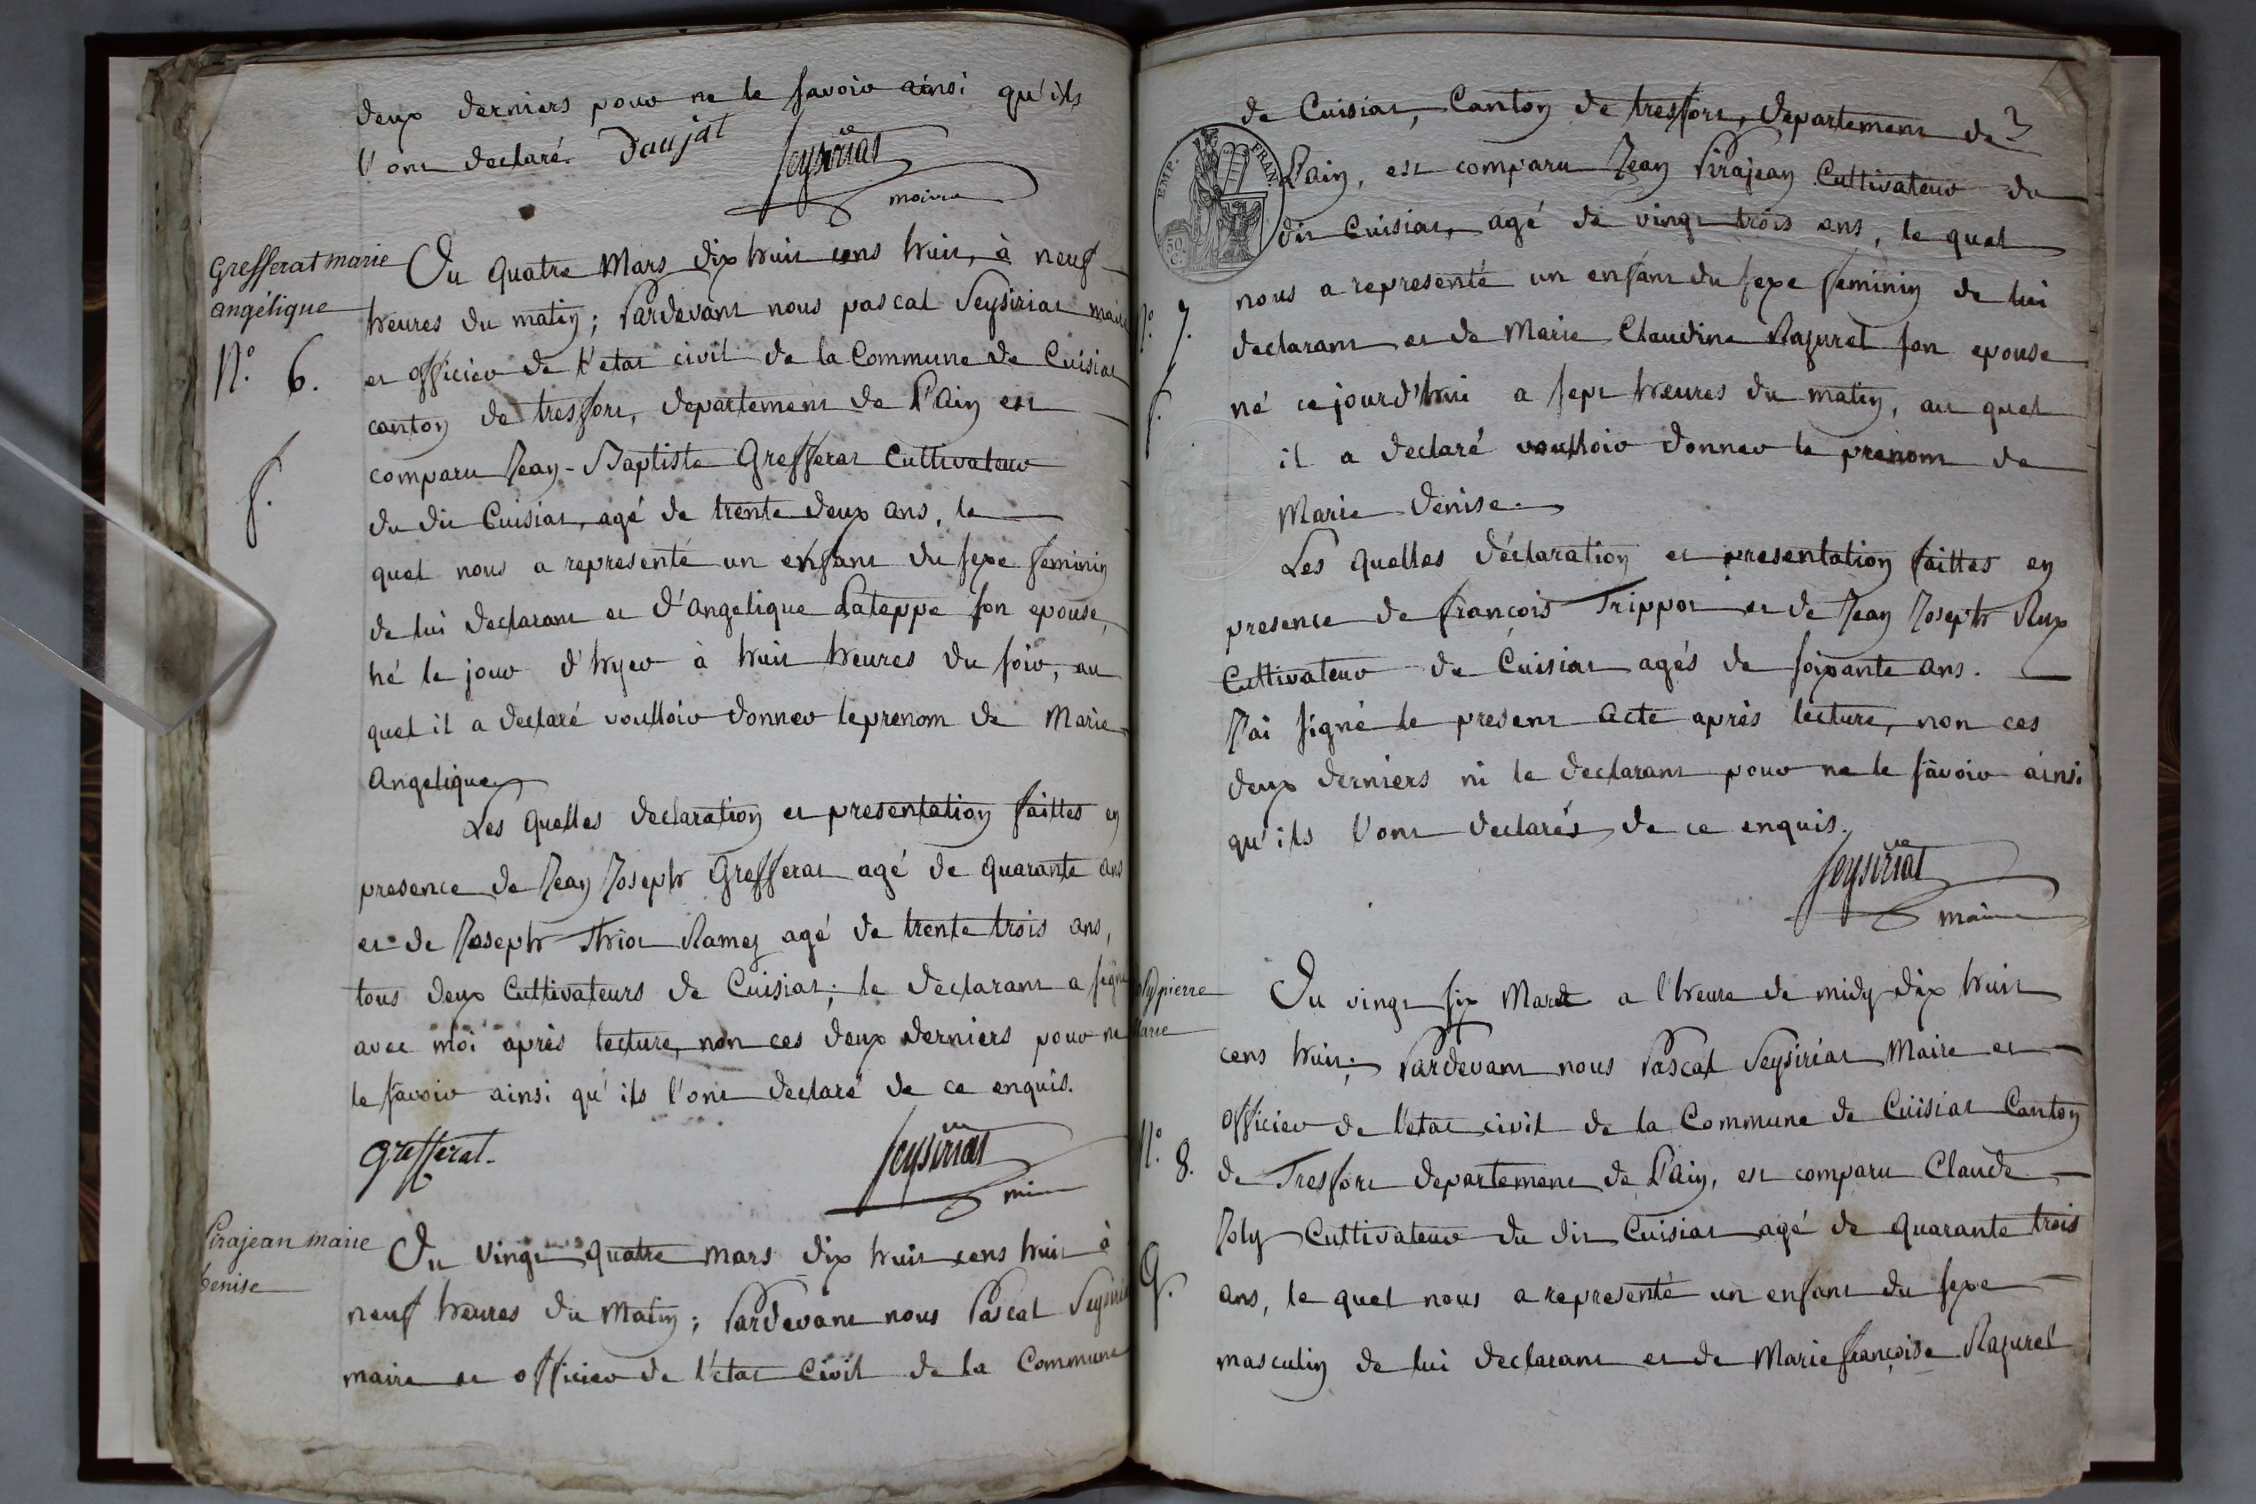 deux derniers pour ne le savoir ainsi qu'ils
l'ont declaré. Daujat Seysiriat
maire
Grefferat marie
angélique
N.° 6.
f.
Du quatre Mars dix huit cens huit, à neuf
heures du matin; Pardevant nous pascal Seysiriat maire
et officier de l'etat civil de la Commune de Cuisiat
canton de tresfort, departement de l'Ain est
comparu Jean-Baptiste Grefferat Cultivateur
du dit Cuisiat, agé de trente deux ans, le
quel nous a representé un enfant du sexe feminin
de lui declarant et d'angelique Lateppe son epouse,
né le jour d'hyer à huit heures du soir, au
quel il a declaré voulloir donner le prenom de Marie
Angelique
Les quelles declaration et presentation faittes en
presence de Jean Joseph Grefferat agé de quarante ans
et de Joseph Ramez agé de trente trois ans,
tous deux Cultivateurs de Cuisiat; le declarant a signé
avec moi après lecture, non ces deux derniers pour ne
le savoir ainsi qu'ils l'ont declaré de ce enquis.
Grefferat. Seysiriat
Pirajean marie
denise
Du vingt quatre mars dix huit cens huit à
neuf heures du matin; Pardevant nous Pascal Seysiriat
maire et officier de l'etat Civil de la Commune
de Cuisiat, Canton de tresfort, departement de
EMP. FRAN.
50 C.
L'ain, est comparu Jean Pirajean Cultivateur du
dit Cuisiat, agé de vingt trois ans, le quel
nous a representé un enfant du sexe feminin de lui
N.° 7.
declarant et de Marie Claudine Razurel son epouse
f.
né ce jourd'hui a sept heures du matin, au quel
il a declaré voulloir donner le prenom de
Marie denise.
Les quelles déclaration et presentation faittes en
presence de françois Trippoz et de Jean Joseph Rux
Cultivateur de Cuisiat agés de soixante ans.
J'ai signé le present acte après lecture, non ces
deux derniers ni le declarant pour ne le savoir ainsi
qu'ils l'ont declarés de ce enquis.
Seysiriat
maire
Joly pierre
Marie
Du vingt six Mars a l'heure de midy dix huit
cens huit; Pardevant nous Pascal Seysiriat Maire et
officier de l'etat civil de la Commune de Cuisiat Canton
N.° 8.
de Tresfort departement de L'ain, est comparu Claude
Joly Cultivateur du dit Cuisiat agé de quarante trois
G.
ans, le quel nous a representé un enfant du sexe
masculin de lui declarant et de Marie françoise Razurel